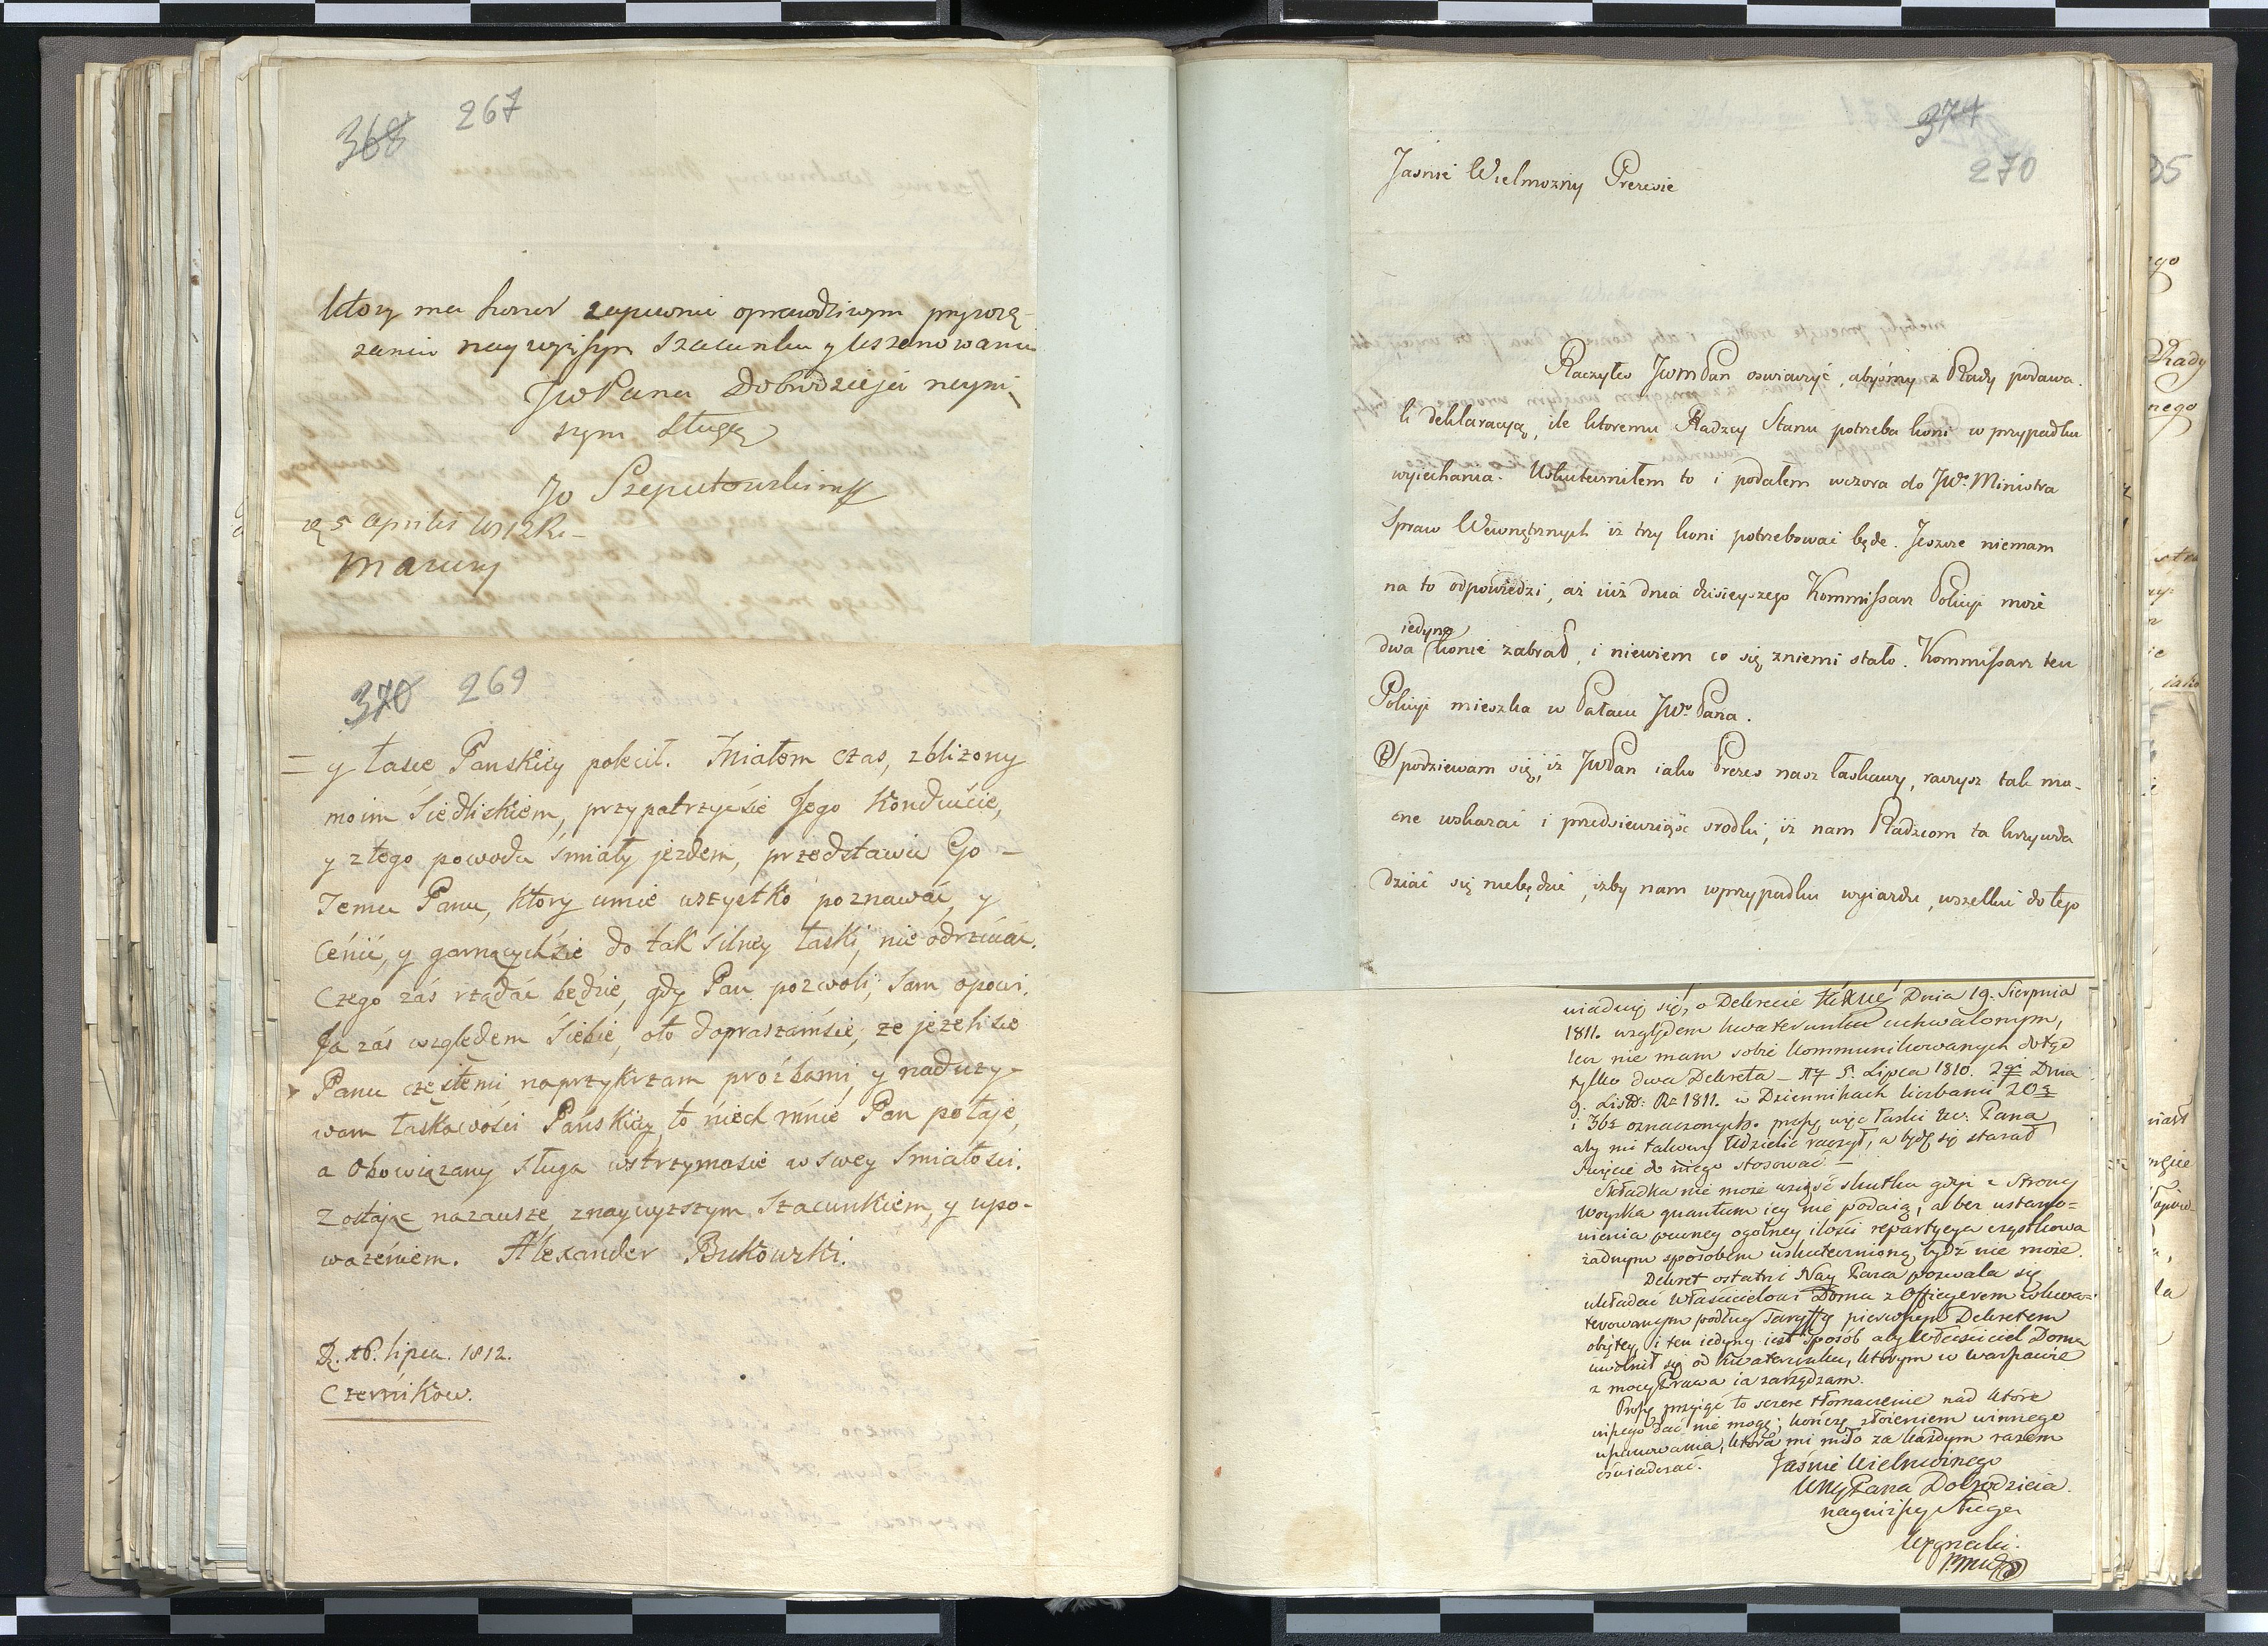 368 267
ktory ma honor zapewnic oprawdziwym przywią-
zaniu naywyższym Szacunku y Uszanowaniu
JwPana Dobrodzieja nayni
szym Sługą
Jo Szeputowskimp
5 Aprilis 1812 R.
Mazury
370 269
y łasce Pańskiey polecił. Miałem czas, zbliżony
moim Siedliskiem, przypatrzyćsie Jego Konduicie,
y z tego powodu śmiały jezdem, przedstawić Go
Temu Panu, ktory umie wszystko poznawać, y
Cenić, y garnącychsie do tak silney łaski, nie odrzucać.
Czego zaś rządać będzie, gdy Pan pozwoli, sam opowi.
Ja zaś względem Siebie, oto dopraszamsie, że jeżelisie
Panu częstemi naprzykrzam prozbami, y naduży-
wam łaskawości Pańskiey, to niech mnie Pan połaje,
a Obowiązany sługa wstrzymasie w swey Smiałości.
Zostając nazawsze, znaywyższym Szacunkiem, y upo-
ważeniem. Alexander Bukowski.
D. 16. lipca. 1812.
Czerników.
371
270
Jasnie Wielmożny Prezesie
Raczyłes JWmPan oswiaczyć, abyśmy z Rady podawa.
li deklaracyą, ile ktoremu Radzcy Stanu potrzeba koni w przypadku
wyiechania. Uskuteczniłem to i podałem wczora do JWo Ministra
Spraw Wewnętrznych iż trzy koni potrzebować będe. Jeszcze niemam
na to odpowiedzi, aż iuż dnia dzisieyszego Kommissarz Policyi moie
iedyne
dwa konie zabrał, i niewiem co się zniemi stało. Kommissarz ten
Policyi mieszka w Pałacu JWo Pana.
Spodziewam się, iż JWPan iako Prezes nasz łaskawy, raczysz tak mo-
cne wskazać i przedsiewziąść srodki, iż nam Radzcom ta krzywda
dziać się niebędzie, izby nam wprzypadku wyiazdu, wszelkie do tego
uiaduię się, o Dekrecie Dnia 19. Sierpnia
1811. względem kwaterunku uchwalonym,
lecz nie mam sobie kommunikowanych dotąd
tylko dwa Dekreta — 5. Lipca 1810. 2gi Dnia
9. List: R= 1811. w Dziennikach liczbami 20
i 36 oznaczonych. proszę więc łaski Pana
aby mi takowy Udzielić raczył, a będę się starał
święcie do niego stosować —
Składka nie może wziąść skutku gdyż z Strony
Woyska quantum iey nie podaią, a bez ustano=
wienia pewney ogolney ilości repartycya cząstkowa
żadnym sposobem uskutecznioną bydź nie może.
Dekret ostatni Nay Pana pozwala się
układać Właścicielowi Domu z Officyerem zakwa=
terowanym podług Taryffy pierwszym Dekretem
obiętey, i ten iedyny iest sposób aby Właściciel Domu
uwolnił się od Kwaterunku, ktorym w Warszawie
z mocy Prawa ia zarządzam.
Proszę przyiąć to szczere tłomaczenie nad które
inszego dać nie mogę; kończę złożeniem winnego
uszanowania, które mi miło za każdym razem
oświadczać.
Jaśnie Wielmożnego
WMgPana Dobrodzieia
nayniższy Sługa